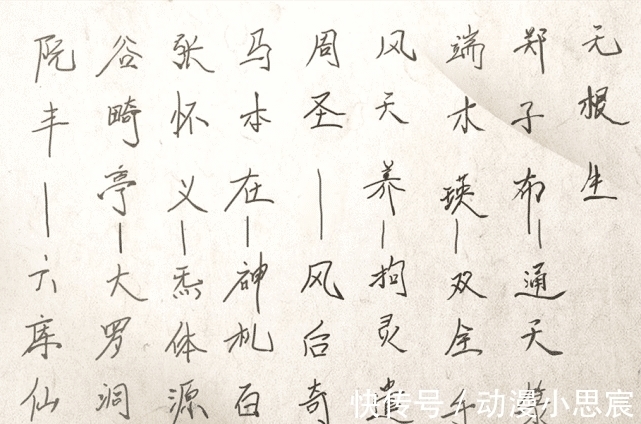 无根生
郑子布—通天箓
端木瑛—双全手
风天养—拘灵遣
周圣—风后奇
马本在—神机百
张怀义—炁体源
谷畸亭—大罗洞
阮丰—六库仙
快传号/动漫小思宸